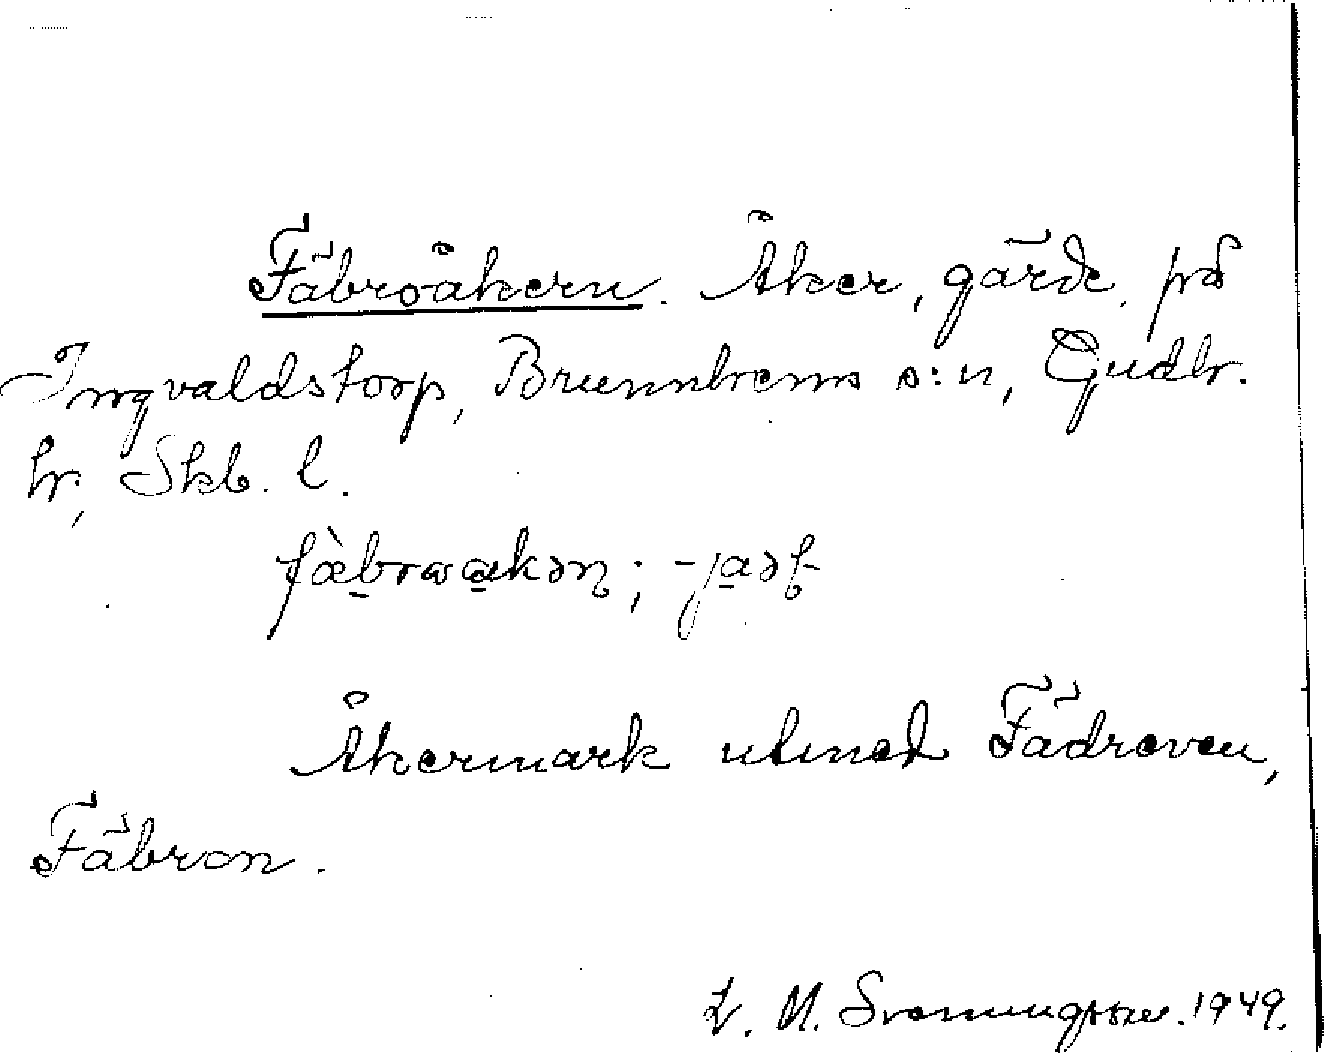 Fäbroåkern. Åker, gärde, på
Ingvaldstorp, Brunnhems s:n, Gudh.
hr, Skb. l.
fàbrωakən; -jaəḷ
Åkermark utmed Fädreven,
Fäbron.
L. M. Svenungsson. 1949.